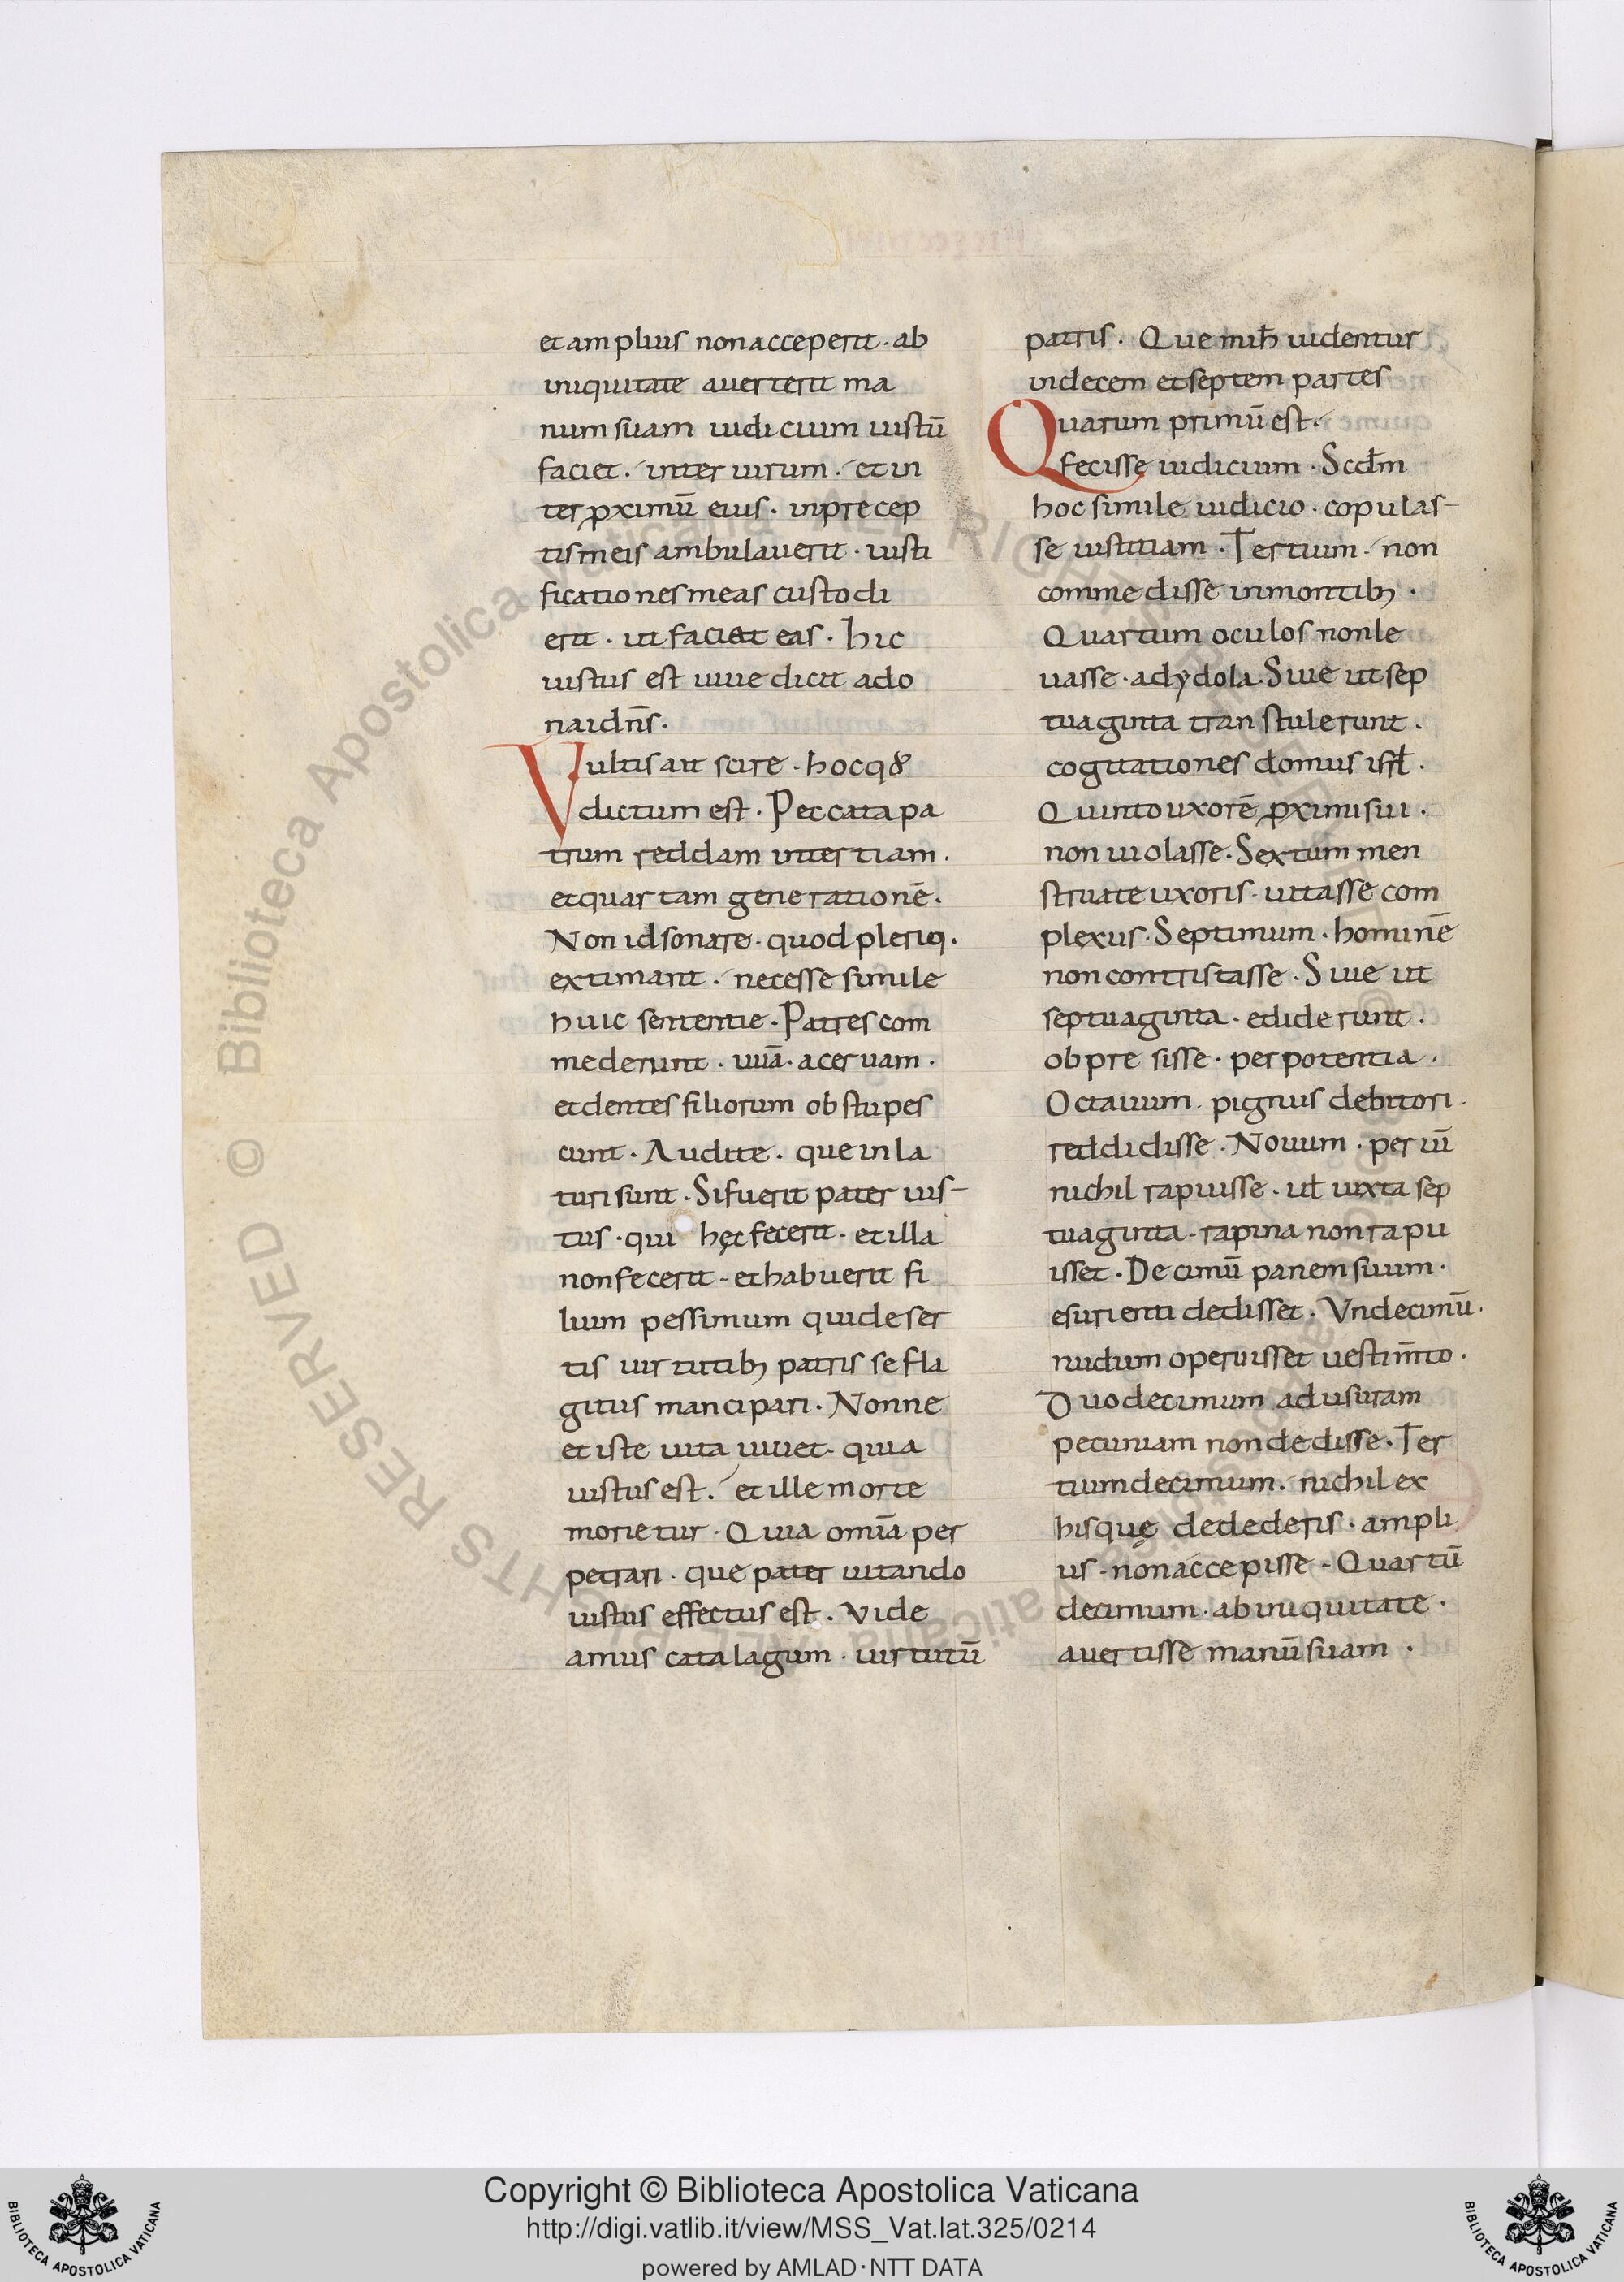 et amplius non acceperit · ab
iniquitate averterit ma
num suam iudicium iustū
faciet · inter virum · et in
ter ꝓximū eius · in precep
tis meis ambulaverit · iusti
ficationes meas custodi
erit · ut faciat eas · hic
iustus est vive dicit ado
nai dn̄s ·
Vultis ait scire · hoc qđ
dictum est · Peccata pa
trum reddam in tertiam ·
et quartam generationē ·
Non id sonare · quod pleriq ·
extimant · necesse simile
huic sententie · Patres com
mederunt · uuā · acervam ·
et dentes filiorum obstupes
cunt · Audite · que in la
turi sunt · Si fuerit pater ius-
tus · qui hęc fecerit · et illa
non fecerit · et habuerit fi
lium pessimum qui deser
tis virtutibꝫ patris se fla
gitiis mancipari · Nonne
et iste vita vivet · quia
iustus est · et ille morte
morietur · Quia omīa per
petrari · que pater vitando
iustus effectus est · Vide
amus catalagum · virtutū
patris · Que mihi videntur
in decem et septem partes
Quarum primū est ·
fecisse iudicium · Scd̄m
hoc simile iudicio · copulas-
se iustitiam · Tertium · non
commedisse in montibꝫ ·
Quartum oculos non le
vasse · ad ydola · Sive ut sep
tuaginta transtulerunt ·
cogitationes domus isrł ·
Quinto uxorē ꝓximi sui ·
non violasse · Sextum men
struate uxoris · vitasse com
plexus · Septimum · hominē
non contristasse · Sive ut
septuaginta · ediderunt ·
obpresisse · per potentia ·
Octavum · pignus debitori ·
reddidisse · Novum · per vī
nichil rapuisse · uł iuxta sep
tuaginta · rapina non rapu
isset · Decimū panem suum ·
esurienti dedisset · Undecimū ·
nudum operuisset vestim̄to ·
Duodecimum ad usuram
pecuniam non dedisse · Ter
tiumdecimum · nichil ex
his que dedederis · ampli
us · non accepisse · Quartū
decimum · ab iniquitate ·
avertisse manū suam ·
Copyright © Biblioteca Apostolica Vaticana
http://digi.vatlib.it/view/MSS_Vat.lat.325/0214
powered by AMLAD·NTT DATA